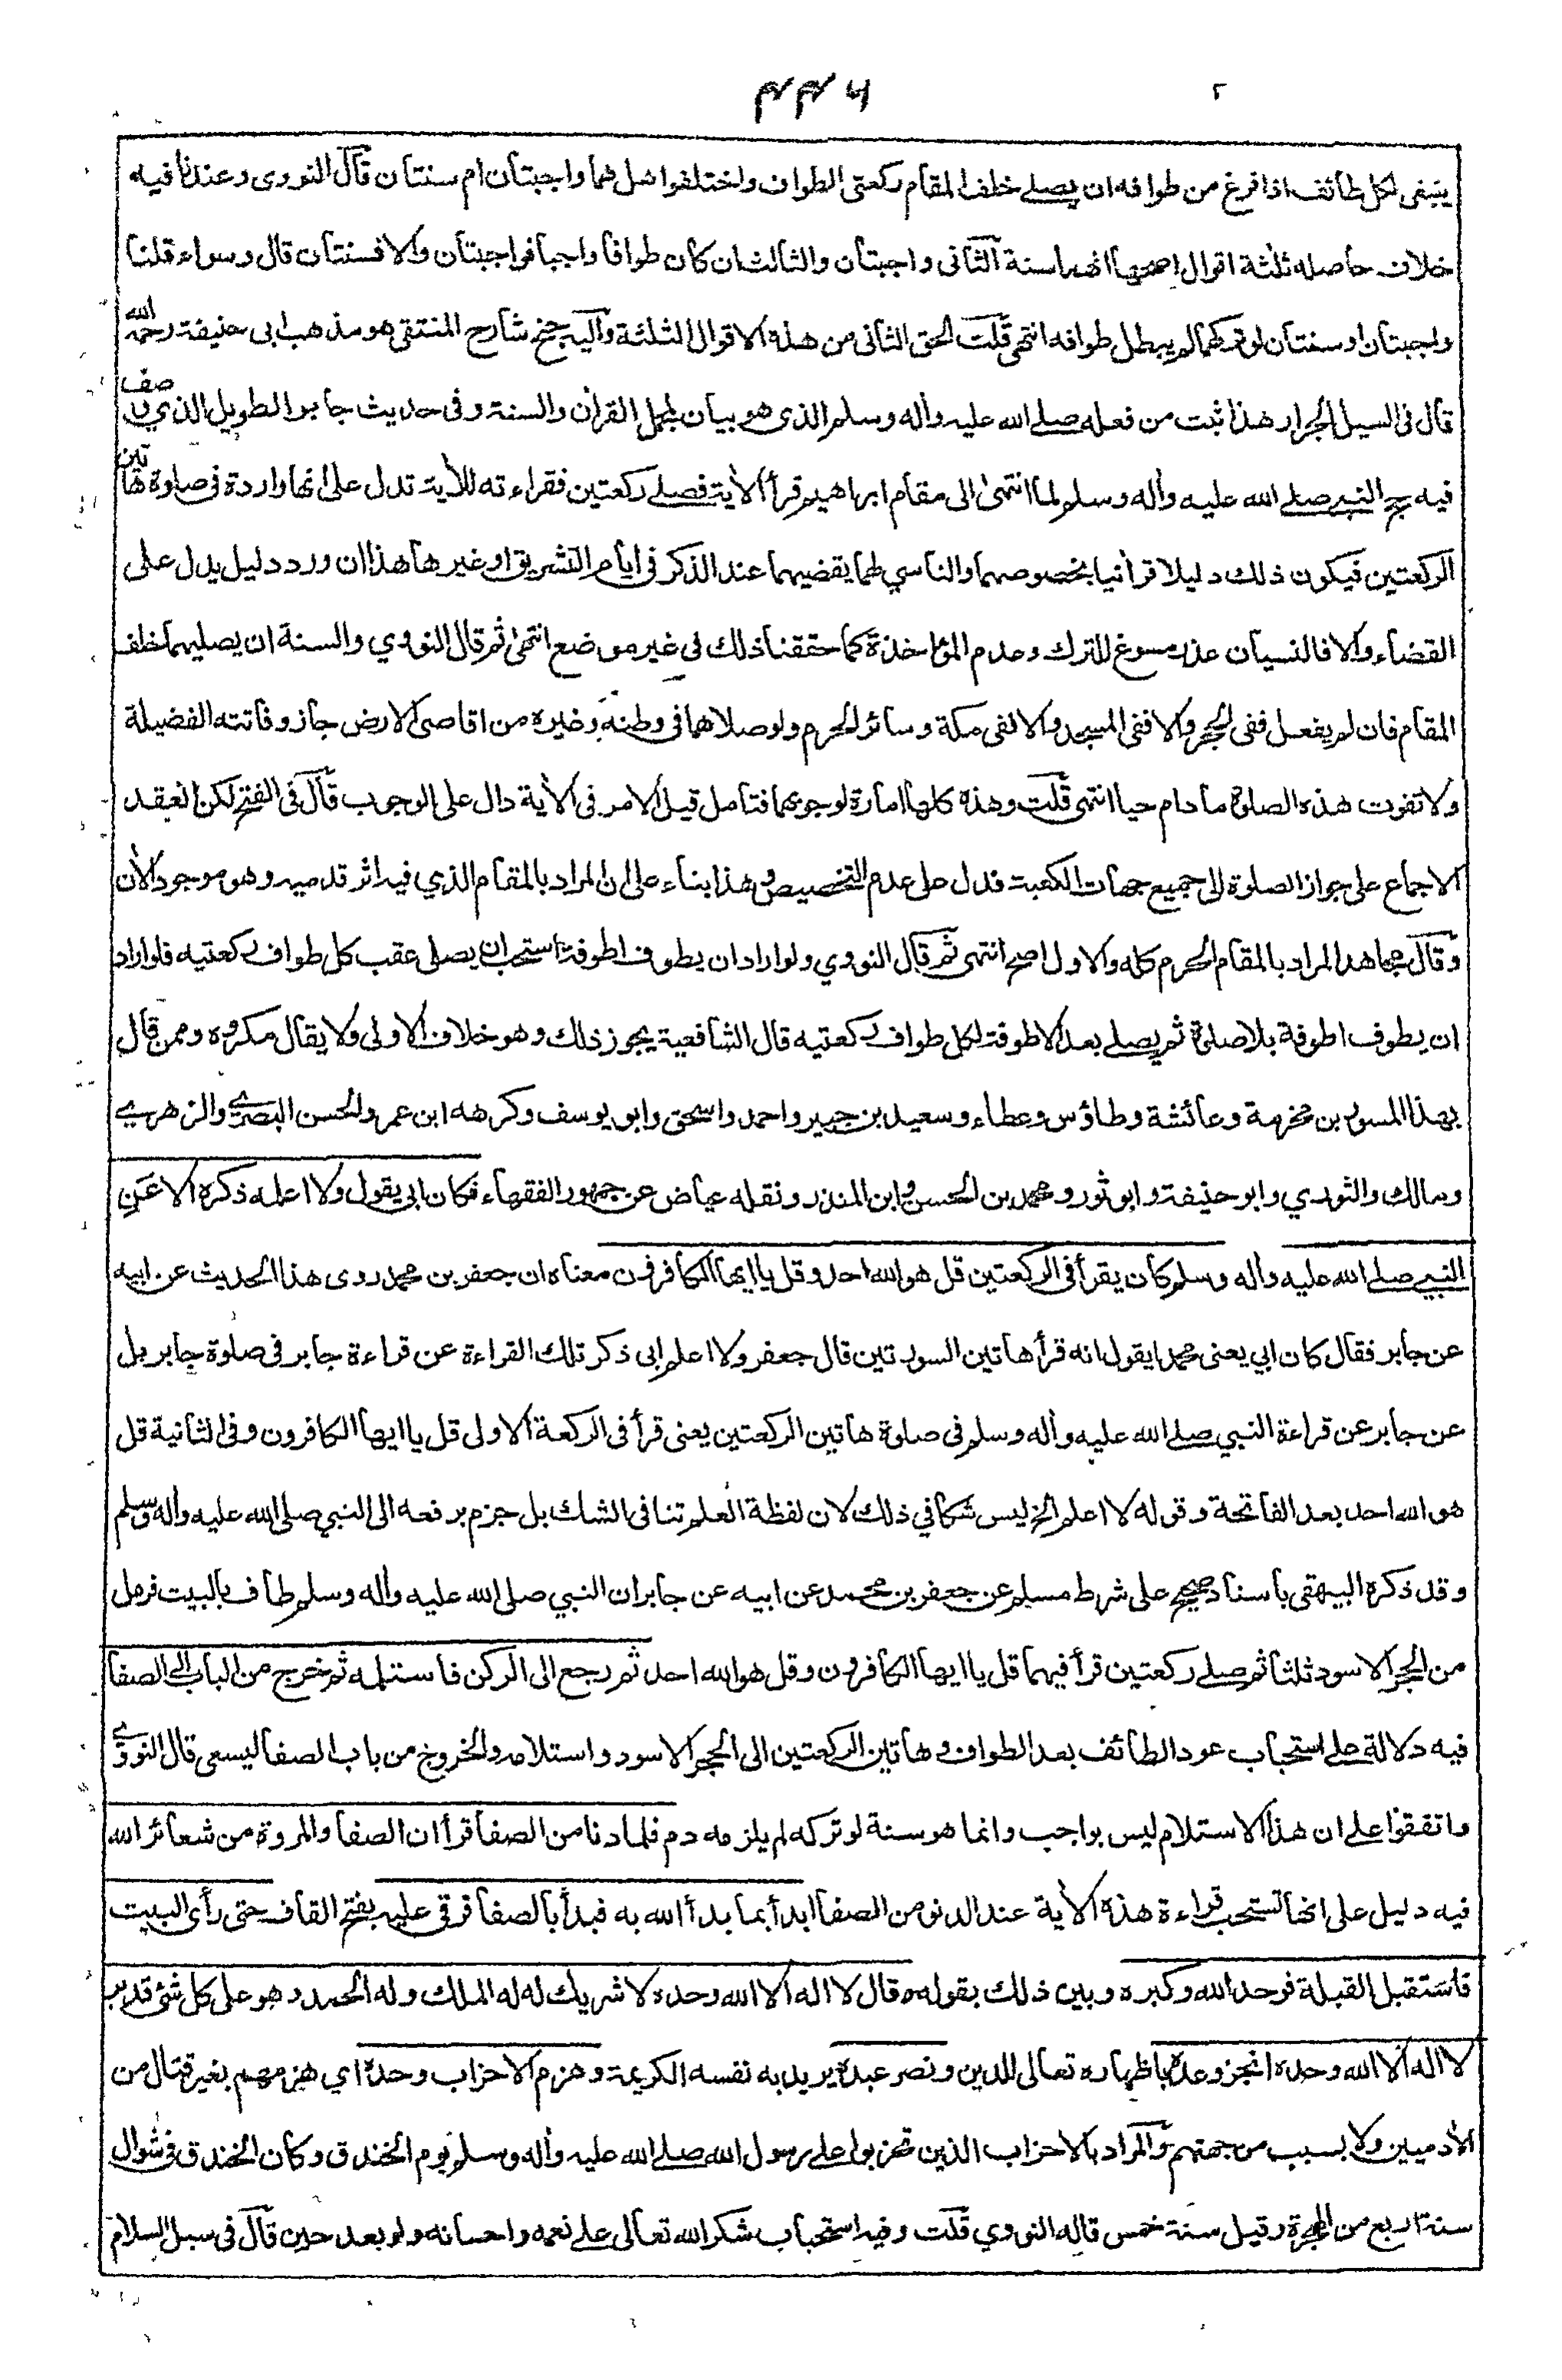 ينبغى لكل طائف اذا فرغ من طوافه ان يصلے خلف المقام ركعتى الطواف واختلفوا هل هما واجبتان ام سنتان قال النووى وعندنا فيه
خلاف حاصله ثلثة اقوال اصحها انهما سنة الثانى واجبتان والثالث ان كان طوافا واجبا فواجبتان والا فسنتان قال وسواء قلنا
واجبتان او سنتان لو تركهما لم يبطل طوافه انتهى قلت الحق الثانى من هذه الاقوال الثلثة واليه جنح شارح المنتقى هو مذهب ابى حنيفة رحمه الله
قال فى السيل الجرار هذا ثبت من فعله صلے الله عليه واٰله وسلم الذى هو بيان لمجمل القراٰن والسنة وفى حديث جابر الطويل الذي وصف
فيه حج النبي صلے الله عليه واٰله وسلم لما انتهىٰ الى مقام ابراهيم قرأ الاٰية فصلے ركعتين فقراءته للاٰية تدل على انها واردة فى صلوة هاتين
الركعتين فيكون ذلك دليلا قراٰنيا بخصوصهما والناسي لهما يقضيهما عند الذكر فى ايام التشريق او غيرها هذا ان ورد دليل يدل على
القضاء والا فالنسيان عذر مسوغ للترك وعدم المؤاخذة كما حققنا ذلك فى غير موضع انتهىٰ ثم قال النووي والسنة ان يصليهما خلف
المقام فان لم يفعل ففى الحجر والا ففى المسجد والا ففى مكة وسائر الحرم ولو صلاهما فى وطنه وغيره من اقاصى الارض جاز وفاتته الفضيلة
ولا تفوت هذه الصلوة ما دام حيا انتهى قلت وهذه كلها امارة لوجوبهما فتامل قيل الامر فى الاٰية دال على الوجوب قال فى الفتح لكن انعقد
الاجماع على جواز الصلوة الى جميع جهات الكعبة فدل على عدم التخصيص وهذا بناء على ان المراد بالمقام الذي فيه اثر قدميه وهو موجود الاٰن
وقال مجاهد المراد بالمقام الحرم كله والاول اصح انتهى ثم قال النووي ولو اراد ان يطوف اطوفة استحب ان يصلى عقب كل طواف ركعتيه فلو اراد
ان يطوف اطوفة بلا صلوة ثم يصلے بعد الاطوفة لكل طواف ركعتيه قال الشافعية يجوز ذلك وهو خلاف الاولى ولا يقال مكروه وممن قال
بهذا المسور بن مخرمة وعائشة وطاؤس وعطاء وسعيد بن جبير واحمد واسحق وابو يوسف وكرهه ابن عمر والحسن البصري والزهري
ومالك والثوري وابو حنيفة وابو ثور ومحمد بن الحسن وابن المنذر ونقله عياض عن جمهور الفقهاء فكان ابى يقول ولا اعلمه ذكره الا عن
النبي صلے الله عليه واٰله وسلم كان يقرأ فى الركعتين قل هو الله احد وقل يا ايها الكافرون معناه ان جعفر بن محمد روى هذا الحديث عن ابيه
عن جابر فقال كان ابي يعنى محمدا يقول انه قرأ هاتين السورتين قال جعفر ولا اعلم ابى ذكر تلك القراءة عن قراءة جابر فى صلوة جابر بل
عن جابر عن قراءة النبي صلے الله عليه واٰله وسلم فى صلوة هاتين الركعتين يعنى قرأ فى الركعة الاولى قل يا ايها الكافرون وفى الثانية قل
هو الله احد بعد الفاتحة وقوله لا اعلم الخ ليس شكا في ذلك لان لفظة العلم تنافى الشك بل جزم برفعه الى النبي صلى الله عليه واٰله وسلم
وقد ذكره البيهقى باسناد صحيح على شرط مسلم عن جعفر بن محمد عن ابيه عن جابر ان النبي صلى الله عليه واٰله وسلم طاف بالبيت فرمل
من الحجر الاسود ثلثا ثم صلے ركعتين قرأ فيهما قل يا ايها الكافرون وقل هو الله احد ثم رجع الى الركن فاستلمه ثم خرج من الباب الى الصفا
فيه دلالة على استحباب عود الطائف بعد الطواف وهاتين الركعتين الى الحجر الاسود واستلامه والخروج من باب الصفا ليسعى قال النووي
واتفقوا على ان هذا الاستلام ليس بواجب وانما هو سنة لو تركه لم يلزمه دم فلما دنا من الصفا قرأ ان الصفا والمروة من شعائر الله
فيه دليل على انها تستحب قراءة هذه الاٰية عند الدنو من الصفا ابدأ بما بدأ الله به فبدأ بالصفا فرقى عليه بفتح القاف حتى رأى البيت
فاستقبل القبلة فوحد الله وكبره وبين ذلك بقوله وقال لا اله الا الله وحده لا شريك له له الملك وله الحمد وهو على كل شئ قدير
لا اله الا الله وحده انجز وعده باظهاره تعالى للدين ونصر عبده يريد به نفسه الكريمة وهزم الاحزاب وحده اي هزمهم بغير قتال من
الاٰدميين ولا بسبب من جهتهم والمراد بالاحزاب الذين تحزبوا على رسول الله صلے الله عليه واٰله وسلم يوم الخندق وكان الخندق فى شوال
سنة اربع من الهجرة وقيل سنة خمس قاله النووي قلت وفيه استحباب شكر الله تعالى على نعمه واحسانه ولو بعد حين قال فى سبل السلام